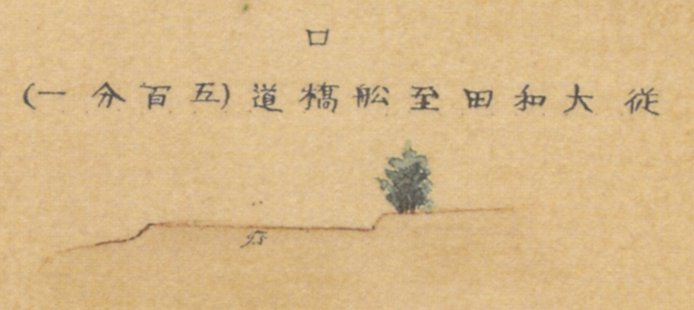 ロ
従大和田至舩橋道(五百分一)